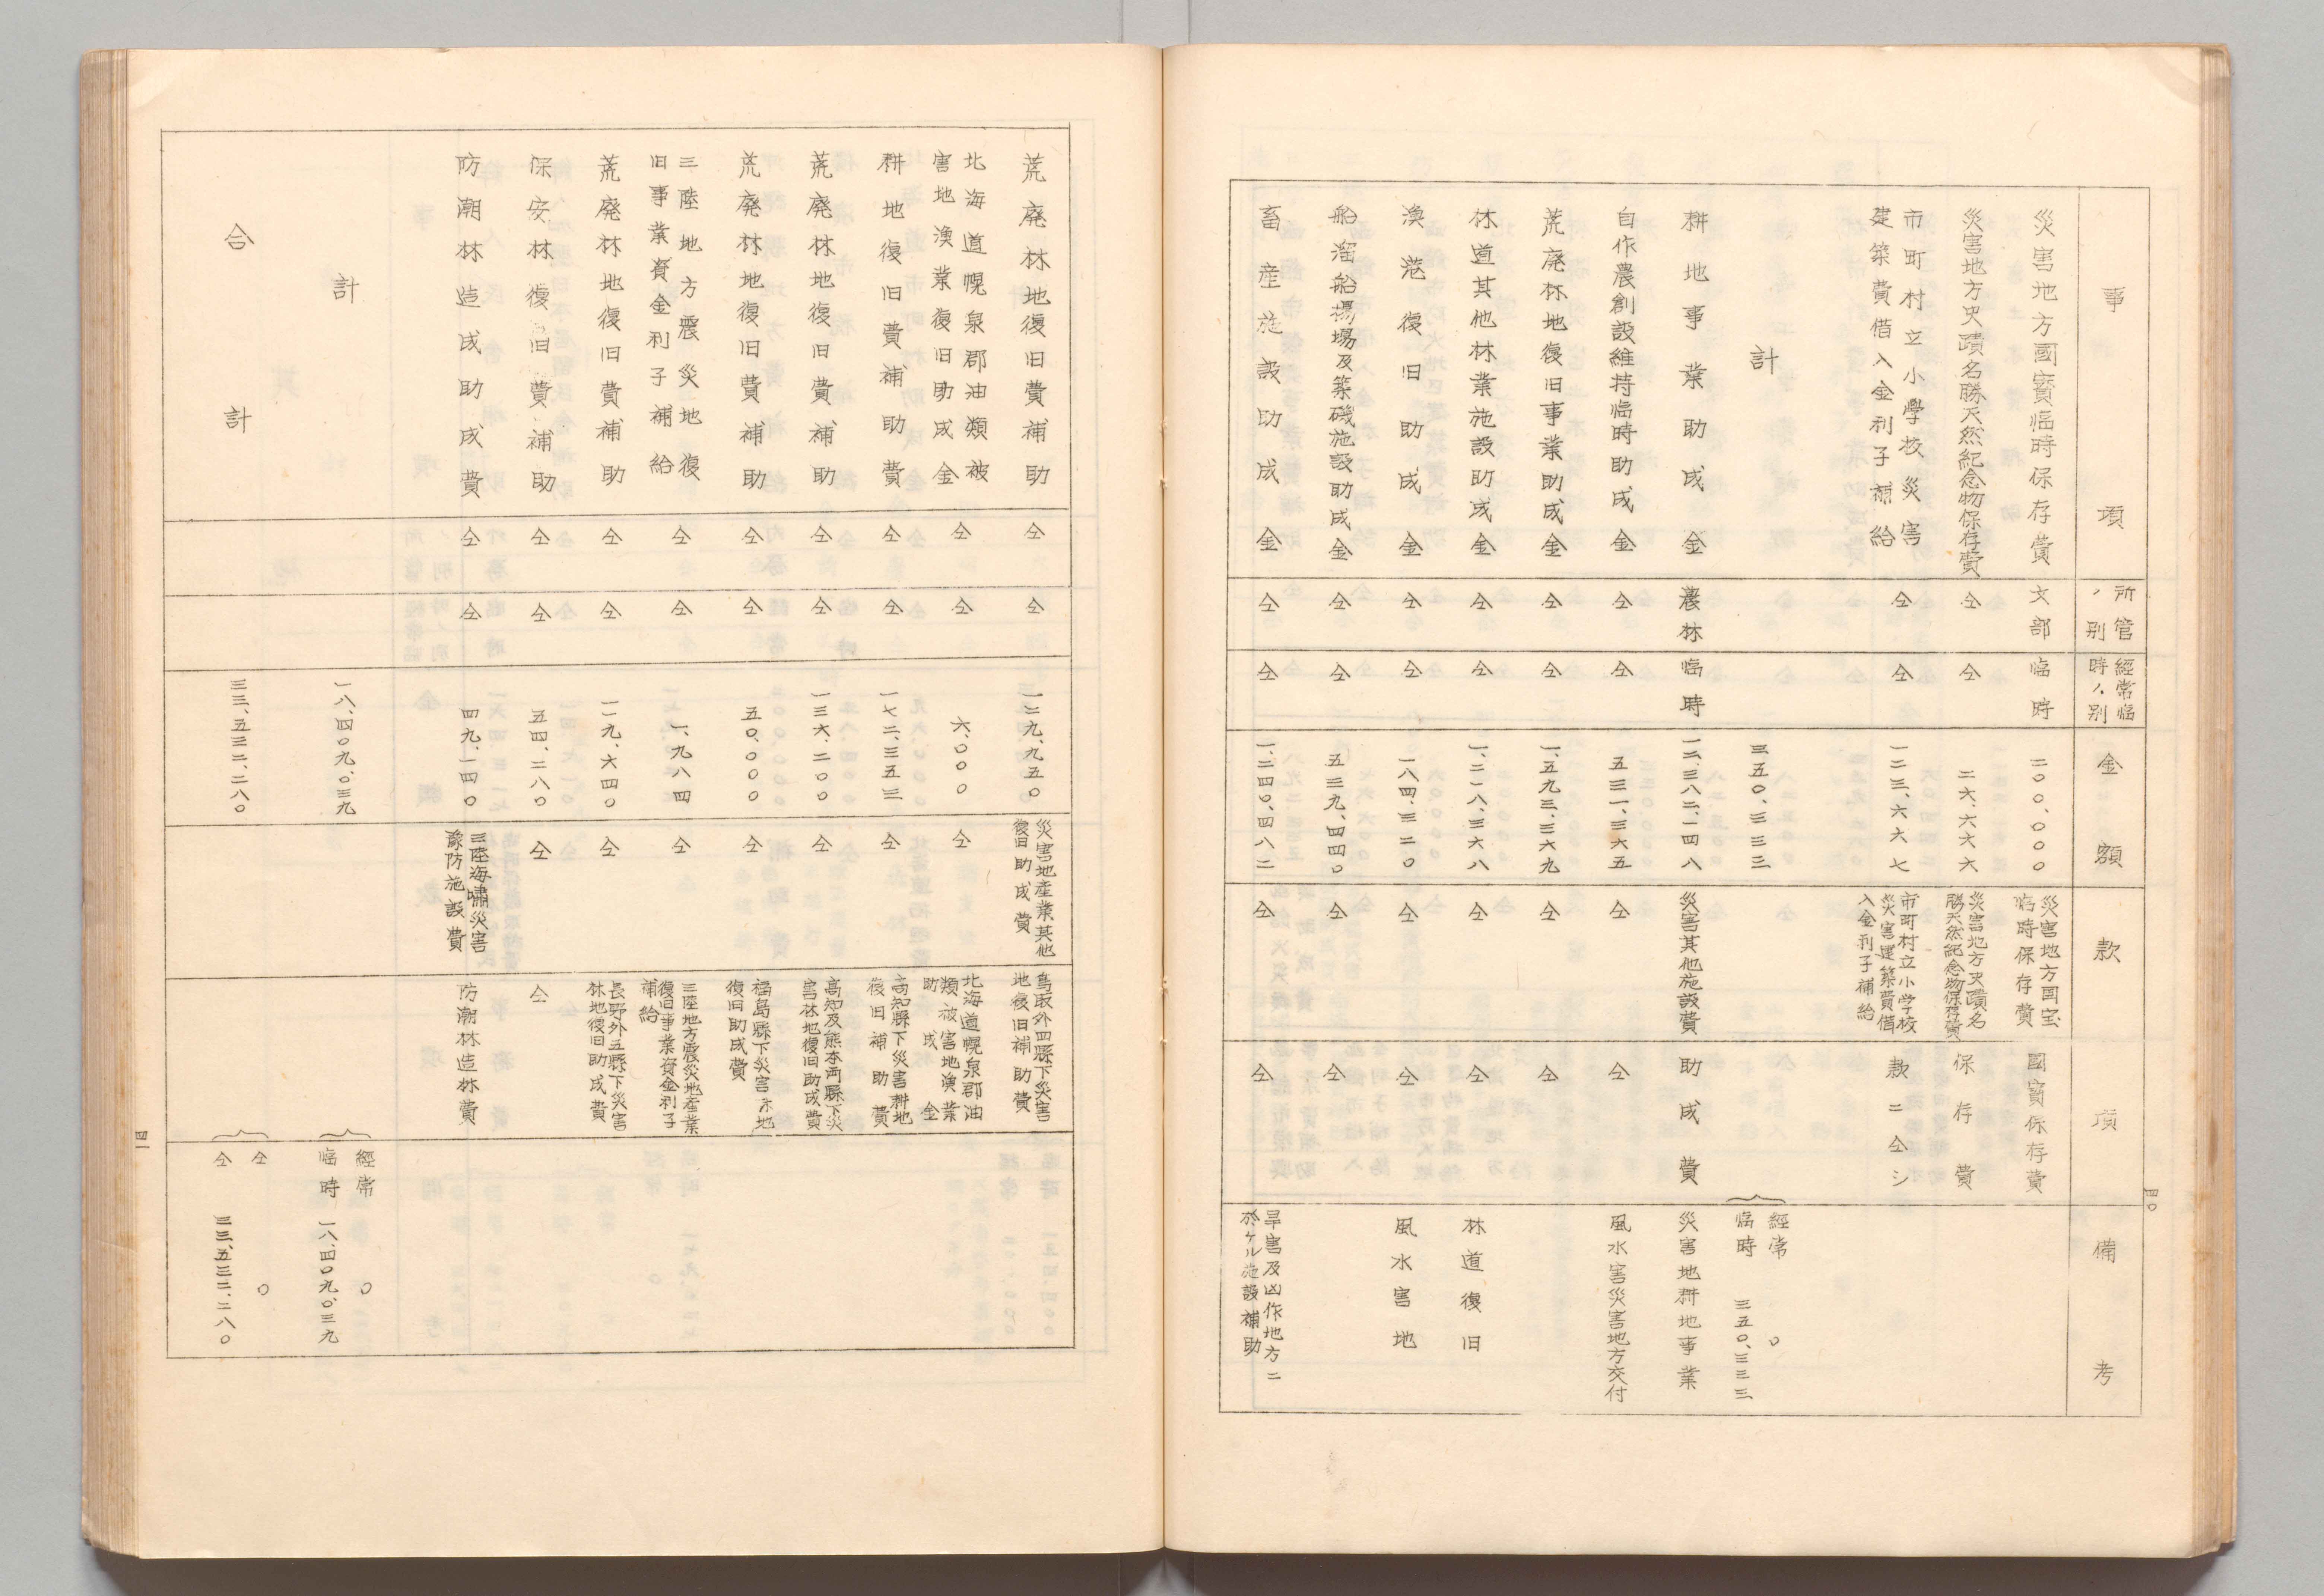 事項
所管ノ別
經常臨時ノ別
金額
款
項
備考
災害地方國寳臨時保存費
文部
臨時
二〇〇、〇〇〇
災害地方国宝
臨時保存費
國寳保存費
災害地方史蹟名勝天然紀念物保存費
仝
仝
二六、六六六
災害地方史蹟名
勝天然紀念物保存費
保存費
市町村立小學校災害
建築費借入金利子補給
仝
仝
一二三、六六七
市町村立小学校
災害運築費借
入金利子補給
款ニ仝シ
計
三五〇、三三三
經常 〇
臨時 三五〇、三三三
耕地事業助成金
農林
臨時
一二、三八二、一四八
災害其他施設費
助成費
災害地耕地事業
自作農創設維持臨時助成金
仝
仝
五三一、三六五
仝
仝
風水害災害地方交付
荒廃林地復旧事業助成金
仝
仝
一、五九三、三六九
仝
仝
林道其他林業施設助成金
仝
仝
一、二一八、三六八
仝
仝
林道復旧
漁港復旧助成金
仝
仝
一八四、三二〇
仝
仝
風水害地
船溜船揚場及築磯施設助成金
仝
仝
五三九、四四〇
仝
仝
畜産施設助成金
仝
仝
一、二四〇、四八二
仝
仝
旱害及凶作地方ニ
於ケル施設補助
四〇
荒廃林地復旧費補助
仝
仝
一二九、九五〇
災害地産業其他
復旧助成費
鳥取外四縣下災害
地復旧補助費
北海道幌泉郡油類被
害地漁業復旧助成金
仝
仝
六、〇〇〇
仝
北海道幌泉郡油
類被害地漁業
助成金
耕地復旧費補助費
仝
仝
一七二、三五三
仝
高知縣下災害耕地
復旧補助費
荒廃林地復旧費補助
仝
仝
一三六、二〇〇
仝
高知及熊本両縣下災
害林地復旧助成費
荒廃林地復旧費補助
仝
仝
五〇、〇〇〇
仝
福島縣下災害林地
復旧助成費
三陸地方震災地復
旧事業資金利子補給
仝
仝
一、九八四
仝
三陸地方震災地産業
復旧事業資金利子
補給
荒廃林地復旧費補助
仝
仝
一一九、六四〇
仝
長野外五縣下災害
林地復旧助成費
保安林復旧費補助
仝
仝
五四、二八〇
仝
仝
防潮林造成助成費
仝
仝
四九、一四〇
三陸海嘯災害
豫防施設費
防潮林造林費
計
一八、四〇九、〇三九
經常 〇
臨時 一八、四〇九、〇三九
合計
三三、五三二、二八〇
仝 〇
仝 三三、五三二、二八〇
四一